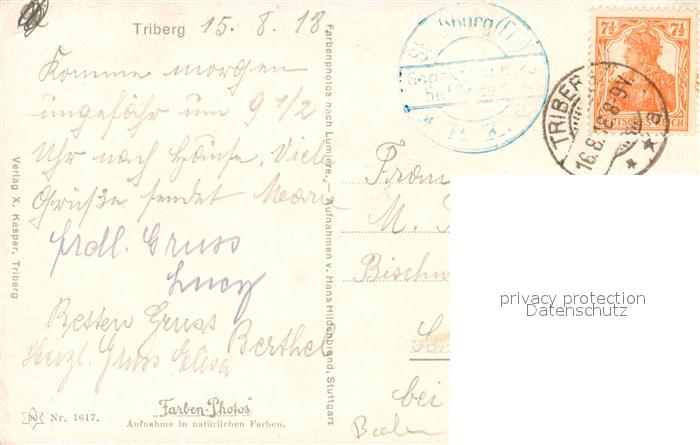 Triberg 15.8.18
Komme morgen
ungefähr um 9 1/2
Uhr nach Hause. Viele
Grüße sendet Marie
frdl. Gruss
Lucy
Besten Gruss
Berthel
Herzl. Gruss Elisa
Verlag X. Kasper, Triberg
Nr. 1617.
"Farben-Photos"
Aufnahme in natürlichen Farben.
Farbenphotos nach Lumière. — Aufnahmen v. Hans Hildenbrand, Stuttgart
P. K.
7½ 7½
DEUTSCHES REICH
TRIBERG
16.8.18. 8-9V.
Frau
M.
Bischw
bei
Baden
privacy protection
Datenschutz